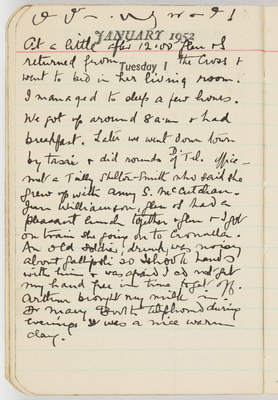 JANUARY 1952
Tuesday 1
At a little after 12.00 Glen & I
returned from the Cross &
went to bed in her living room.
I managed to sleep a few hours.
We got up around 8 a.m. & had
breakfast. Later we went down town
by taxi & did rounds D. Tel. office
met a Tilly Shelton-Smith who said she
grew up with Amy S. McCutcheon.
June Williamson, Glen & I had a
pleasant lunch together. Glen & I got
on train she going on to Cronulla.
An old soldier, drunk, was noisy
about Gallipoli so I shook hands
with him & was afraid I'd not get
my hand free in time to get off.
Arthur brought my milk in.
Dr Mary Booth telephoned during
evening. It was a nice warm
day.